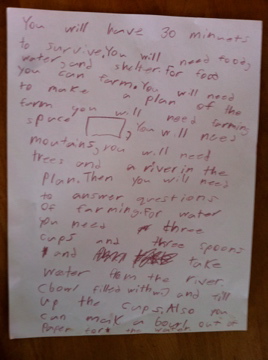 You will have 30 minuets
to survive. You will need food,
water, and shelter. For food
you can farm. You will need
to make a plan of the
farm you will need farming
space , You will need
moutains, you will need
trees and a river in the
plan. Then you will need
to answer questions
of farming. For water
you need three
cups and three spoons
and take
water from the river
(bowl filled with) and fill
up the cups. Also you
can mak a out of
Paper for the water